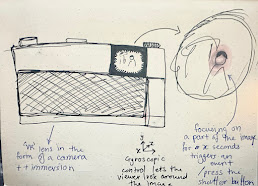 "VR" lens in the
form of a camera
++ immersion
y
x
Gyroscopic
control lets the
viewer look around
the image
focusing on
a part of the image
for x seconds
triggers an
event /
press the
shutter button